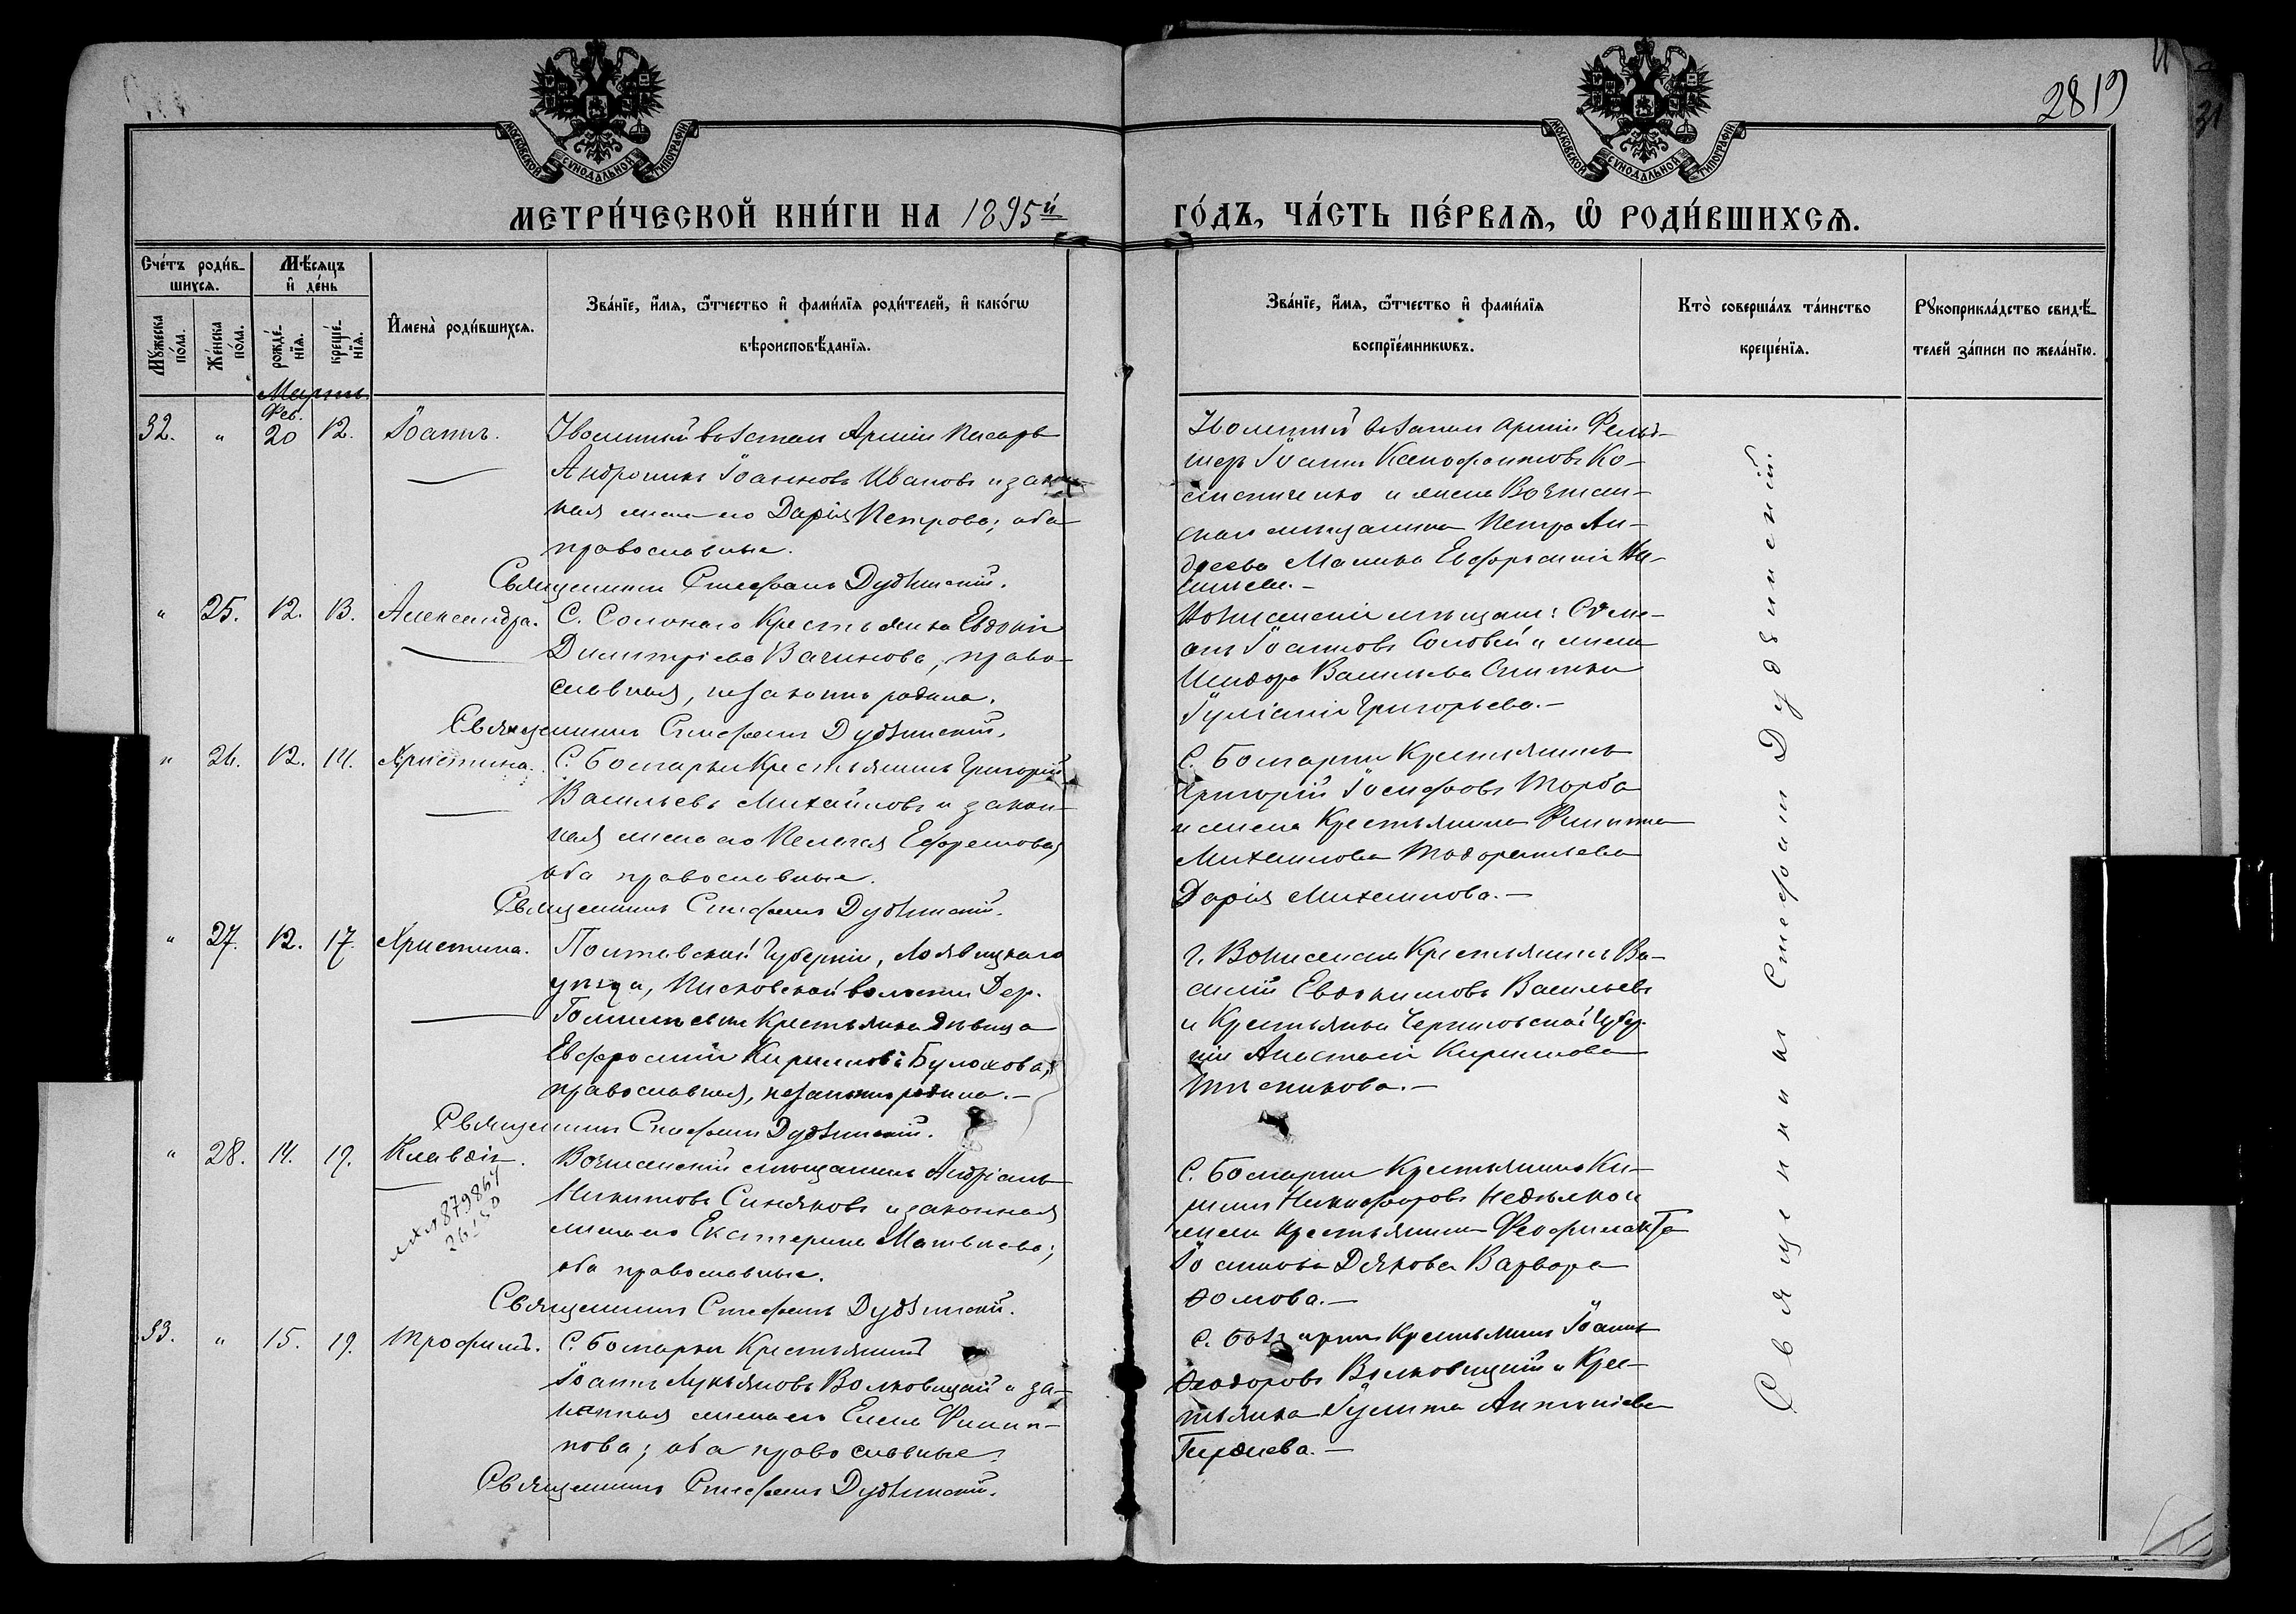 2819
31
МОСКОВСКОЙ СѴНОДАЛЬНОЙ ТИПОГРАФІИ
МОСКОВСКОЙ СѴНОДАЛЬНОЙ ТИПОГРАФІИ
МЕТРИ́ЧЕСКОЙ КНИ́ГИ НА 1895й
ГО́ДЪ, ЧА́СТЬ ПЕ́РВАѦ, Ѡ҆ РОДИ́ВШИХСѦ.
Сче́тъ роди́в-
шихсѧ.
Мѣсѧцъ
и҆ де́нь
Мꙋжеска по́ла.
Же́нска по́ла.
рожде́-нїѧ.
креще́-нїѧ.
И҆мена̀ роди́вшихсѧ.
Зва́нїе, и҆́мѧ, ѻ҆́тчество и҆ фами́лїѧ роди́телей, и҆ како́гѡ
вѣроисповѣ́данїѧ.
Зва́нїе, и҆́мѧ, ѻ҆́тчество и҆ фами́лїѧ
воспрїе́мникѡвъ.
Кто̀ соверша́лъ та́инство
креще́нїѧ.
Рꙋкоприкла́дство свидѣ́-
телей за́писи по жела́нїю.
Мартъ
Фев.
32. " 20 12. Іоаннъ. Уволенный въ запас Арміи Писарь
Андроникъ Іоанновъ Ивановъ и закон-
ная жена его Дарія Петрова; оба
православные.
Священникъ Стефанъ Дудзинскій.
Уволенный въ запас арміи Фельд-
шеръ Іоаннъ Ксенофонтовъ Ко-
и жена Вознесен-
скаго мѣщанина Петра Ан-
дреева Евфросинія
" 25. 12. 13. Александра. С. Солонаго Крестьянка Евдокія
Димитріева православ-
славная, незаконно родила.
Священникъ Стефанъ Дудзинскій.
Вознесенскій мѣщан: Симе-
онъ Іоанновъ Соловей и жена
Исидора Васильева
Іуліанія Григорьева.—
" 26. 12. 14. Христина. С. Болгарки Крестьянинъ Григорій
Васильевъ Михайловъ и закон-
ная жена его Пелагея Ефремова,
оба православные.
Священникъ Стефанъ Дудзинскій.
С. Болгарки Крестьянинъ
Григорій Іосифовъ Торба
и жена Крестьянина Филиппа
Михайлова
Дарія Михайлова.—
" 27. 12. 17. Христина. Полтавской Губерніи, Лохвицкаго
уѣзда, Песковской волости Дер.
Крестьянка дѣвица
Евфросинія Кириллова Булахова,
православная, незаконно родила.—
Священникъ Стефанъ Дудзинскій.
г. Вознесенска Крестьянинъ Ва-
силій Евдокимовъ Васильевъ
и Крестьянка Черниговской Губер-
ніи Анастасія Кириллова
" 28. 14. 19. Клавдія. Вознесенскій мѣщанинъ Андріанъ
Никитовъ Синяковъ и законная
жена его Екатерина Матвѣева;
оба православные.
Священникъ Стефанъ Дудзинскій.
879864
С. Болгарки Крестьянинъ Ки-
риллъ Никифоровъ Недѣлко и
жена крестьянина Феофилакта
Іоаннова Дякова Варвара
Ѳомова.—
33. " 15. 19. Трофимъ. С. Болгарки Крестьянинъ
Іоаннъ Лукьяновъ Волковицкій и за-
конная жена его Елена Филип-
пова; оба православные.
Священникъ Стефанъ Дудзинскій.
С. Болгарки Крестьянинъ Іоаннъ
Ѳеодоровъ Волковицкій и Крес-
тьянка Іулитта Антоніева
Священникъ Стефанъ Дудзинскій.